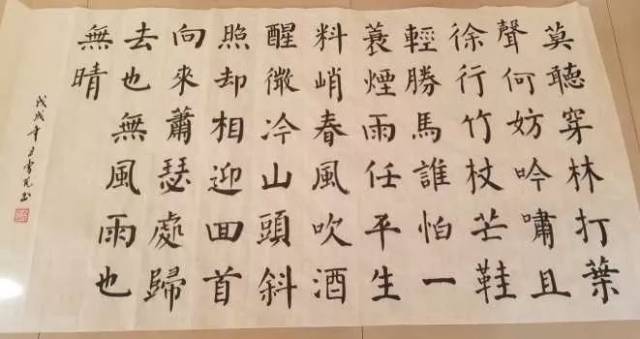 莫聽穿林打葉
聲何妨吟嘯且
徐行竹杖芒鞋
輕勝馬誰怕一
蓑煙雨任平生
料峭春風吹酒
醒微冷山頭斜
照却相迎回首
向來蕭瑟處歸
去也無風雨也
無晴
戊戌年